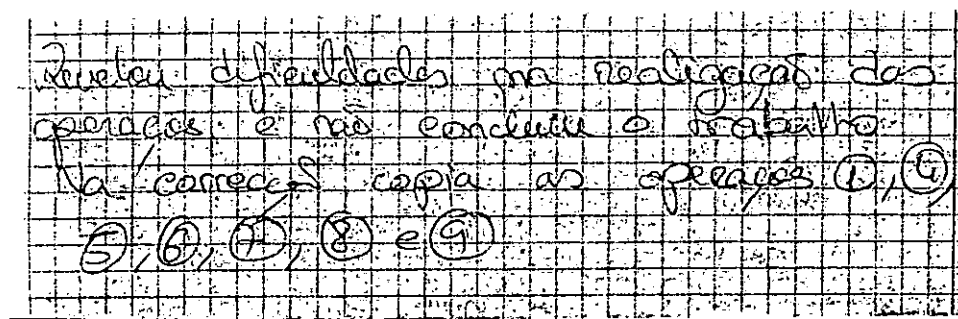 Revelou dificuldades na realização das
operações e não concluiu o trabalho
Na correcção copia as operações ①, ④,
⑤, ⑥, ⑦, ⑧ e ⑨